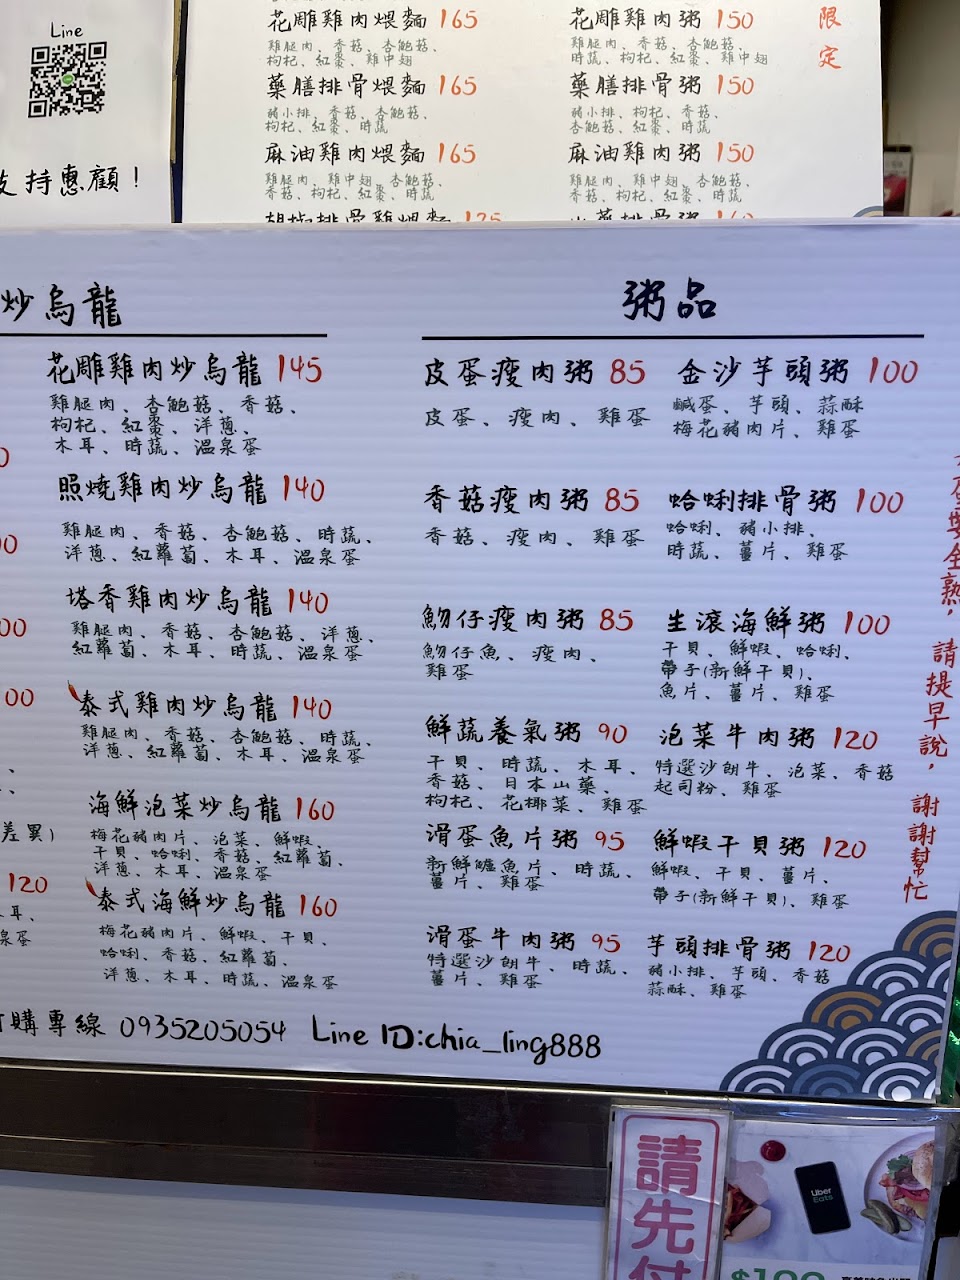 Line
支持惠顧！
花雕雞肉煨麵 165
雞腿肉、香菇、杏鮑菇、
枸杞、紅棗、雞中翅
藥膳排骨煨麵 165
豬小排、香菇、杏鮑菇、
枸杞、紅棗、時蔬
麻油雞肉煨麵 165
雞腿肉、雞中翅、杏鮑菇、
香菇、枸杞、紅棗、時蔬
花雕雞肉粥 150
雞腿肉、香菇、杏鮑菇、
時蔬、枸杞、紅棗、雞中翅
藥膳排骨粥 150
豬小排、枸杞、香菇、
杏鮑菇、紅棗、時蔬
麻油雞肉粥 150
雞腿肉、雞中翅、杏鮑菇、
香菇、枸杞、紅棗、時蔬
限定
炒烏龍
花雕雞肉炒烏龍 145
雞腿肉、杏鮑菇、香菇、
枸杞、紅棗、洋蔥、
木耳、時蔬、溫泉蛋
照燒雞肉炒烏龍 140
雞腿肉、香菇、杏鮑菇、時蔬、
洋蔥、紅蘿蔔、木耳、溫泉蛋
塔香雞肉炒烏龍 140
雞腿肉、香菇、杏鮑菇、洋蔥、
紅蘿蔔、木耳、時蔬、溫泉蛋
泰式雞肉炒烏龍 140
雞腿肉、香菇、杏鮑菇、時蔬、
洋蔥、紅蘿蔔、木耳、溫泉蛋
海鮮泡菜炒烏龍 160
梅花豬肉片、泡菜、鮮蝦、
干貝、蛤蜊、香菇、紅蘿蔔、
洋蔥、木耳、溫泉蛋
泰式海鮮炒烏龍 160
梅花豬肉片、鮮蝦、干貝、
蛤蜊、香菇、紅蘿蔔、
洋蔥、木耳、時蔬、溫泉蛋
差異)
120
粥品
皮蛋瘦肉粥 85
皮蛋、瘦肉、雞蛋
香菇瘦肉粥 85
香菇、瘦肉、雞蛋
魩仔瘦肉粥 85
魩仔魚、瘦肉、
雞蛋
鮮蔬養氣粥 90
干貝、時蔬、木耳、
香菇、日本山藥、
枸杞、花椰菜、雞蛋
滑蛋魚片粥 95
新鮮鱸魚片、時蔬、
薑片、雞蛋
滑蛋牛肉粥 95
特選沙朗牛、時蔬、
薑片、雞蛋
金沙芋頭粥 100
鹹蛋、芋頭、蒜酥
梅花豬肉片、雞蛋
蛤蜊排骨粥 100
蛤蜊、豬小排、
時蔬、薑片、雞蛋
生滾海鮮粥 100
干貝、鮮蝦、蛤蜊、
帶子(新鮮干貝)、
魚片、薑片、雞蛋
泡菜牛肉粥 120
特選沙朗牛、泡菜、香菇
起司粉、雞蛋
鮮蝦干貝粥 120
鮮蝦、干貝、薑片、
帶子(新鮮干貝)、雞蛋
芋頭排骨粥 120
豬小排、芋頭、香菇
蒜酥、雞蛋
蛋要全熟，請提早說，謝謝幫忙
訂購專線 0935205054 Line ID:chia_ling888
請先付
Uber
Eats